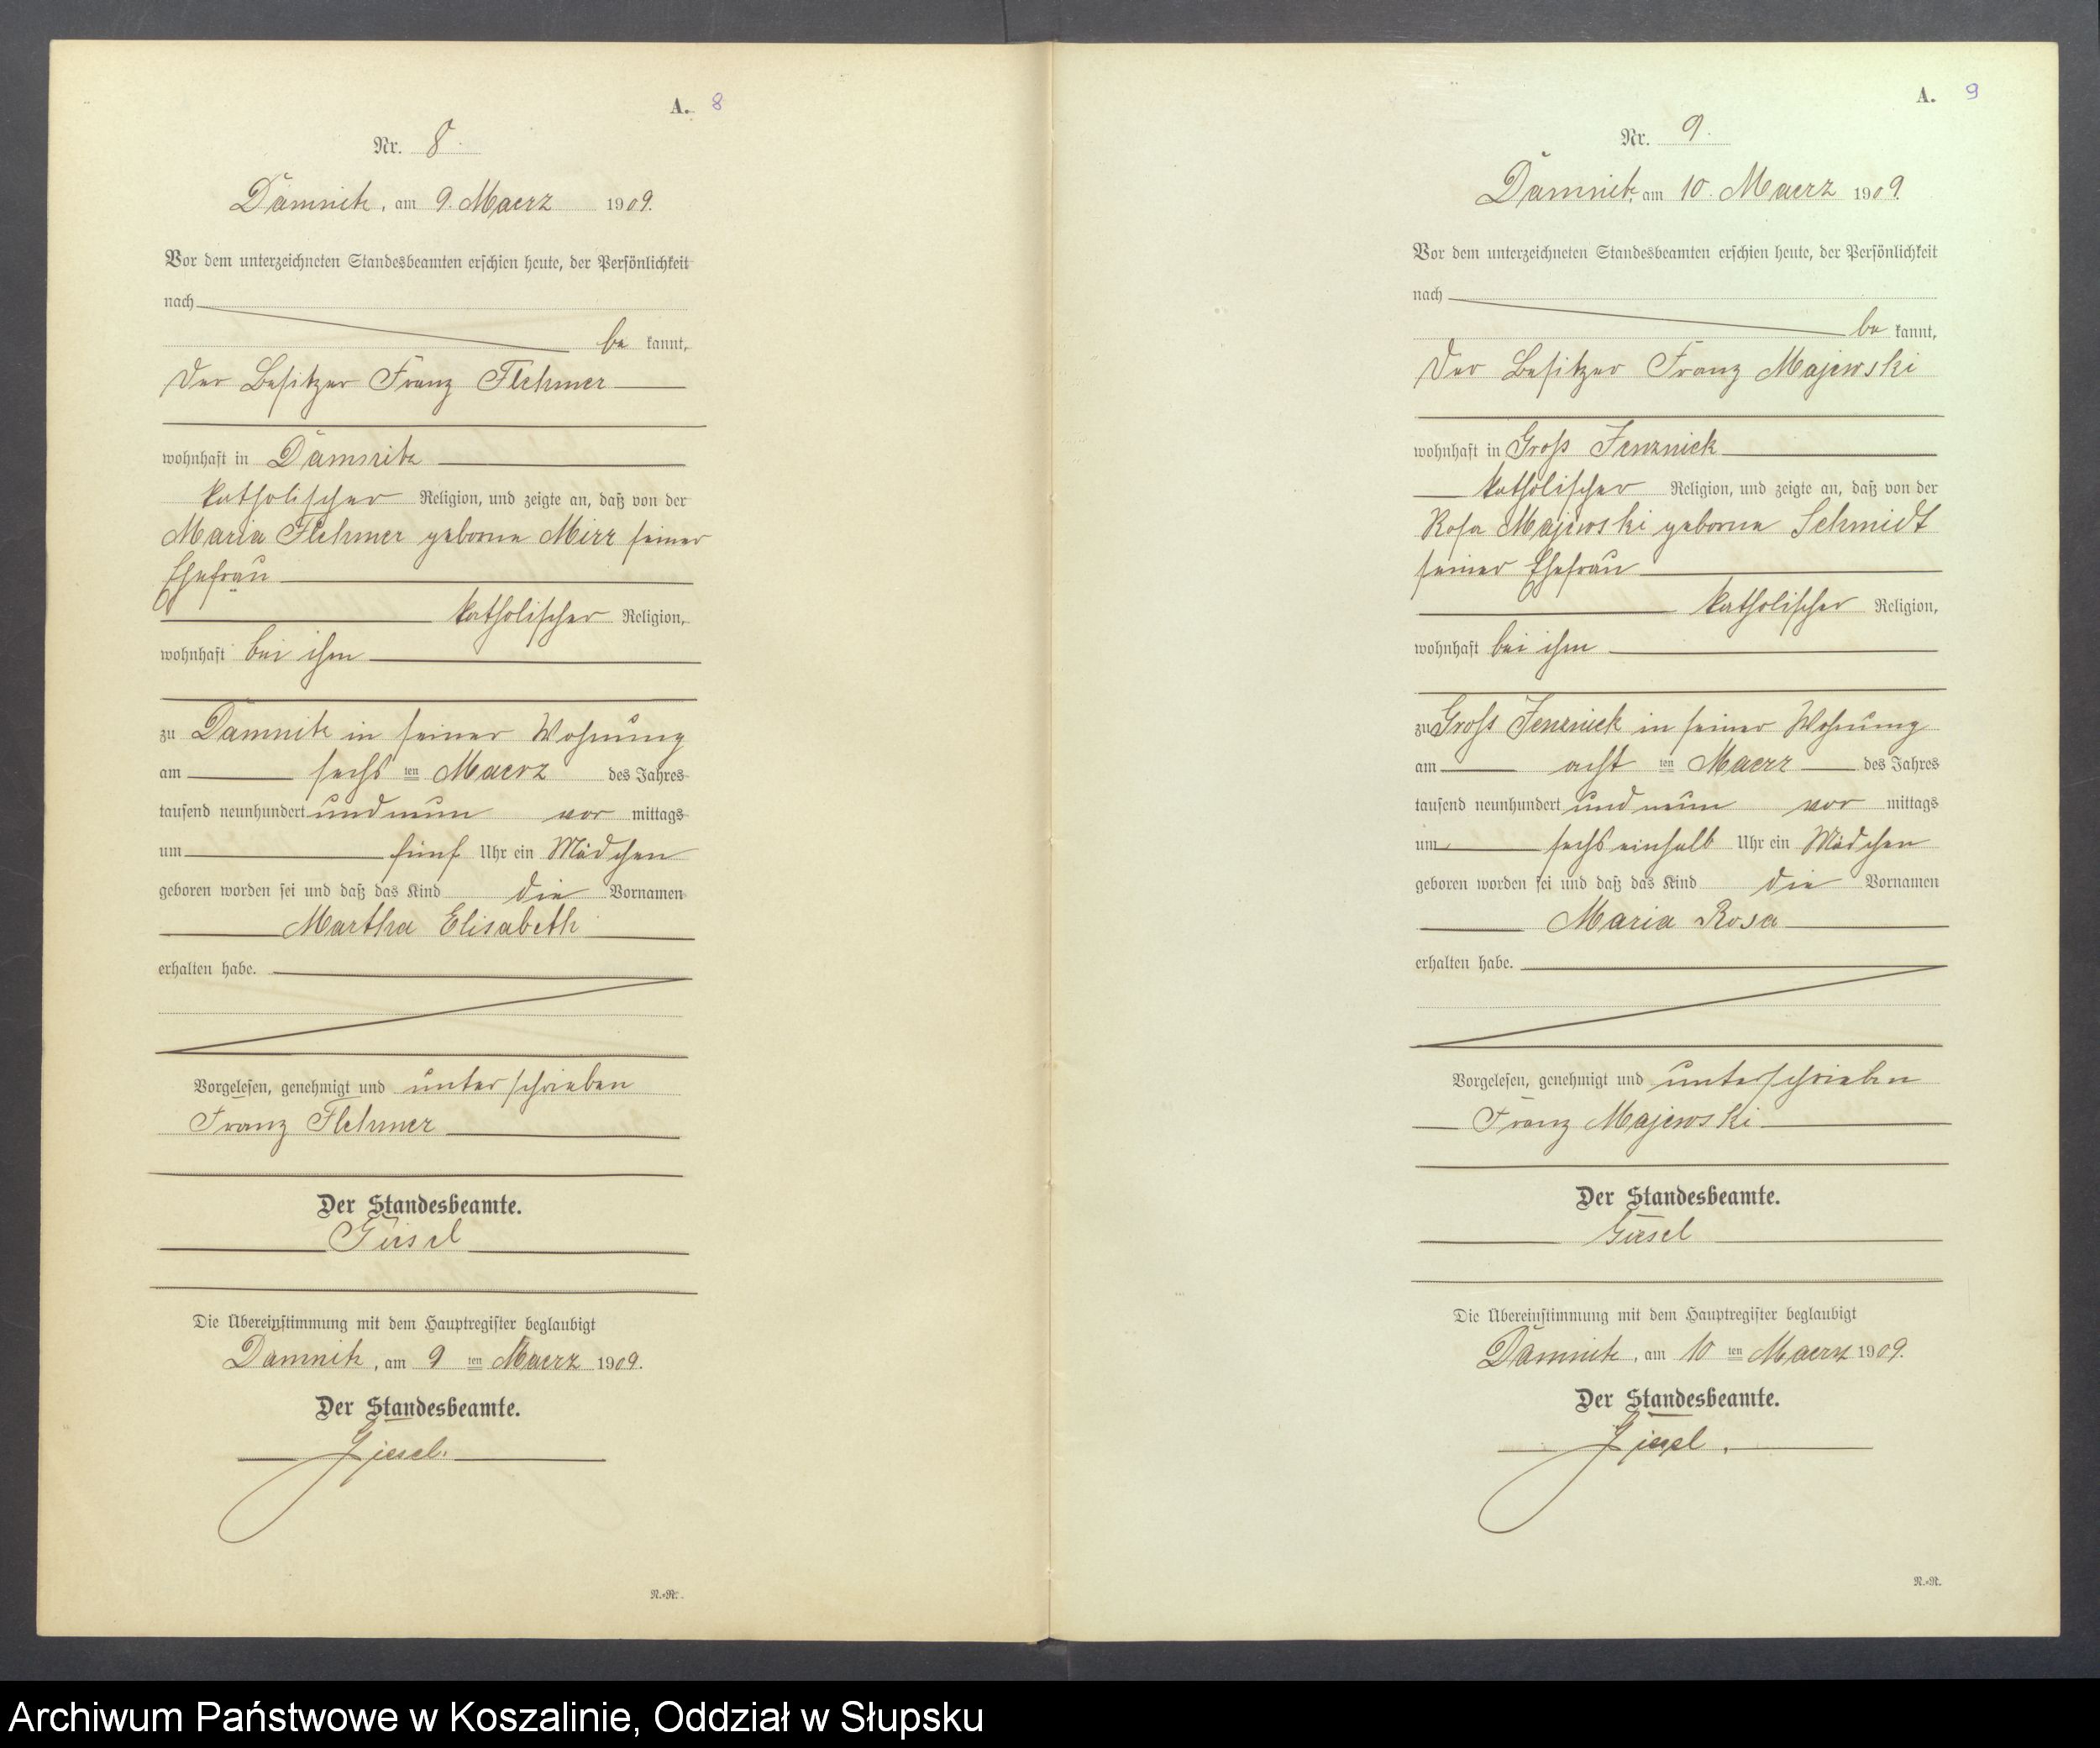 A. 8
Nr. 8.
Damnitz, am 9. Maerz 1909.
Vor dem unterzeichneten Standesbeamten erschien heute, der Persönlichkeit
nach
be kannt,
der Besitzer Franz Flehmer
wohnhaft in Damnitz
katholischer Religion, und zeigte an, daß von der
Maria Flehmer geborne Mirr seiner
Ehefrau
katholischer Religion,
wohnhaft bei ihm
zu Damnitz in seiner Wohnung
am sechs ten Maerz des Jahres
tausend neunhundert und neun vor mittags
um fünf Uhr ein Mädchen
geboren worden sei und daß das Kind die Vornamen
Martha Elisabeth
erhalten habe.
Vorgelesen, genehmigt und unterschrieben
Franz Flehmer
Der Standesbeamte.
Giesel
Die Übereinstimmung mit dem Hauptregister beglaubigt
Damnitz, am 9 ten Maerz 1909.
Der Standesbeamte.
Giesel.
N.-R.
A. 9
Nr. 9.
Damnitz, am 10. Maerz 1909.
Vor dem unterzeichneten Standesbeamten erschien heute, der Persönlichkeit
nach
be kannt,
der Besitzer Franz Majewski
wohnhaft in Groß Jenznick
katholischer Religion, und zeigte an, daß von der
Rosa Majewski geborne Schmidt
seiner Ehefrau
katholischer Religion,
wohnhaft bei ihm
zu Groß Jenznick in seiner Wohnung
am acht ten Maerz des Jahres
tausend neunhundert und neun vor mittags
um sechs einhalb Uhr ein Mädchen
geboren worden sei und daß das Kind die Vornamen
Maria Rosa
erhalten habe.
Vorgelesen, genehmigt und unterschrieben
Franz Majewski
Der Standesbeamte.
Giesel
Die Übereinstimmung mit dem Hauptregister beglaubigt
Damnitz, am 10 ten Maerz 1909.
Der Standesbeamte.
Giesel.
N.-R.
Archiwum Państwowe w Koszalinie, Oddział w Słupsku